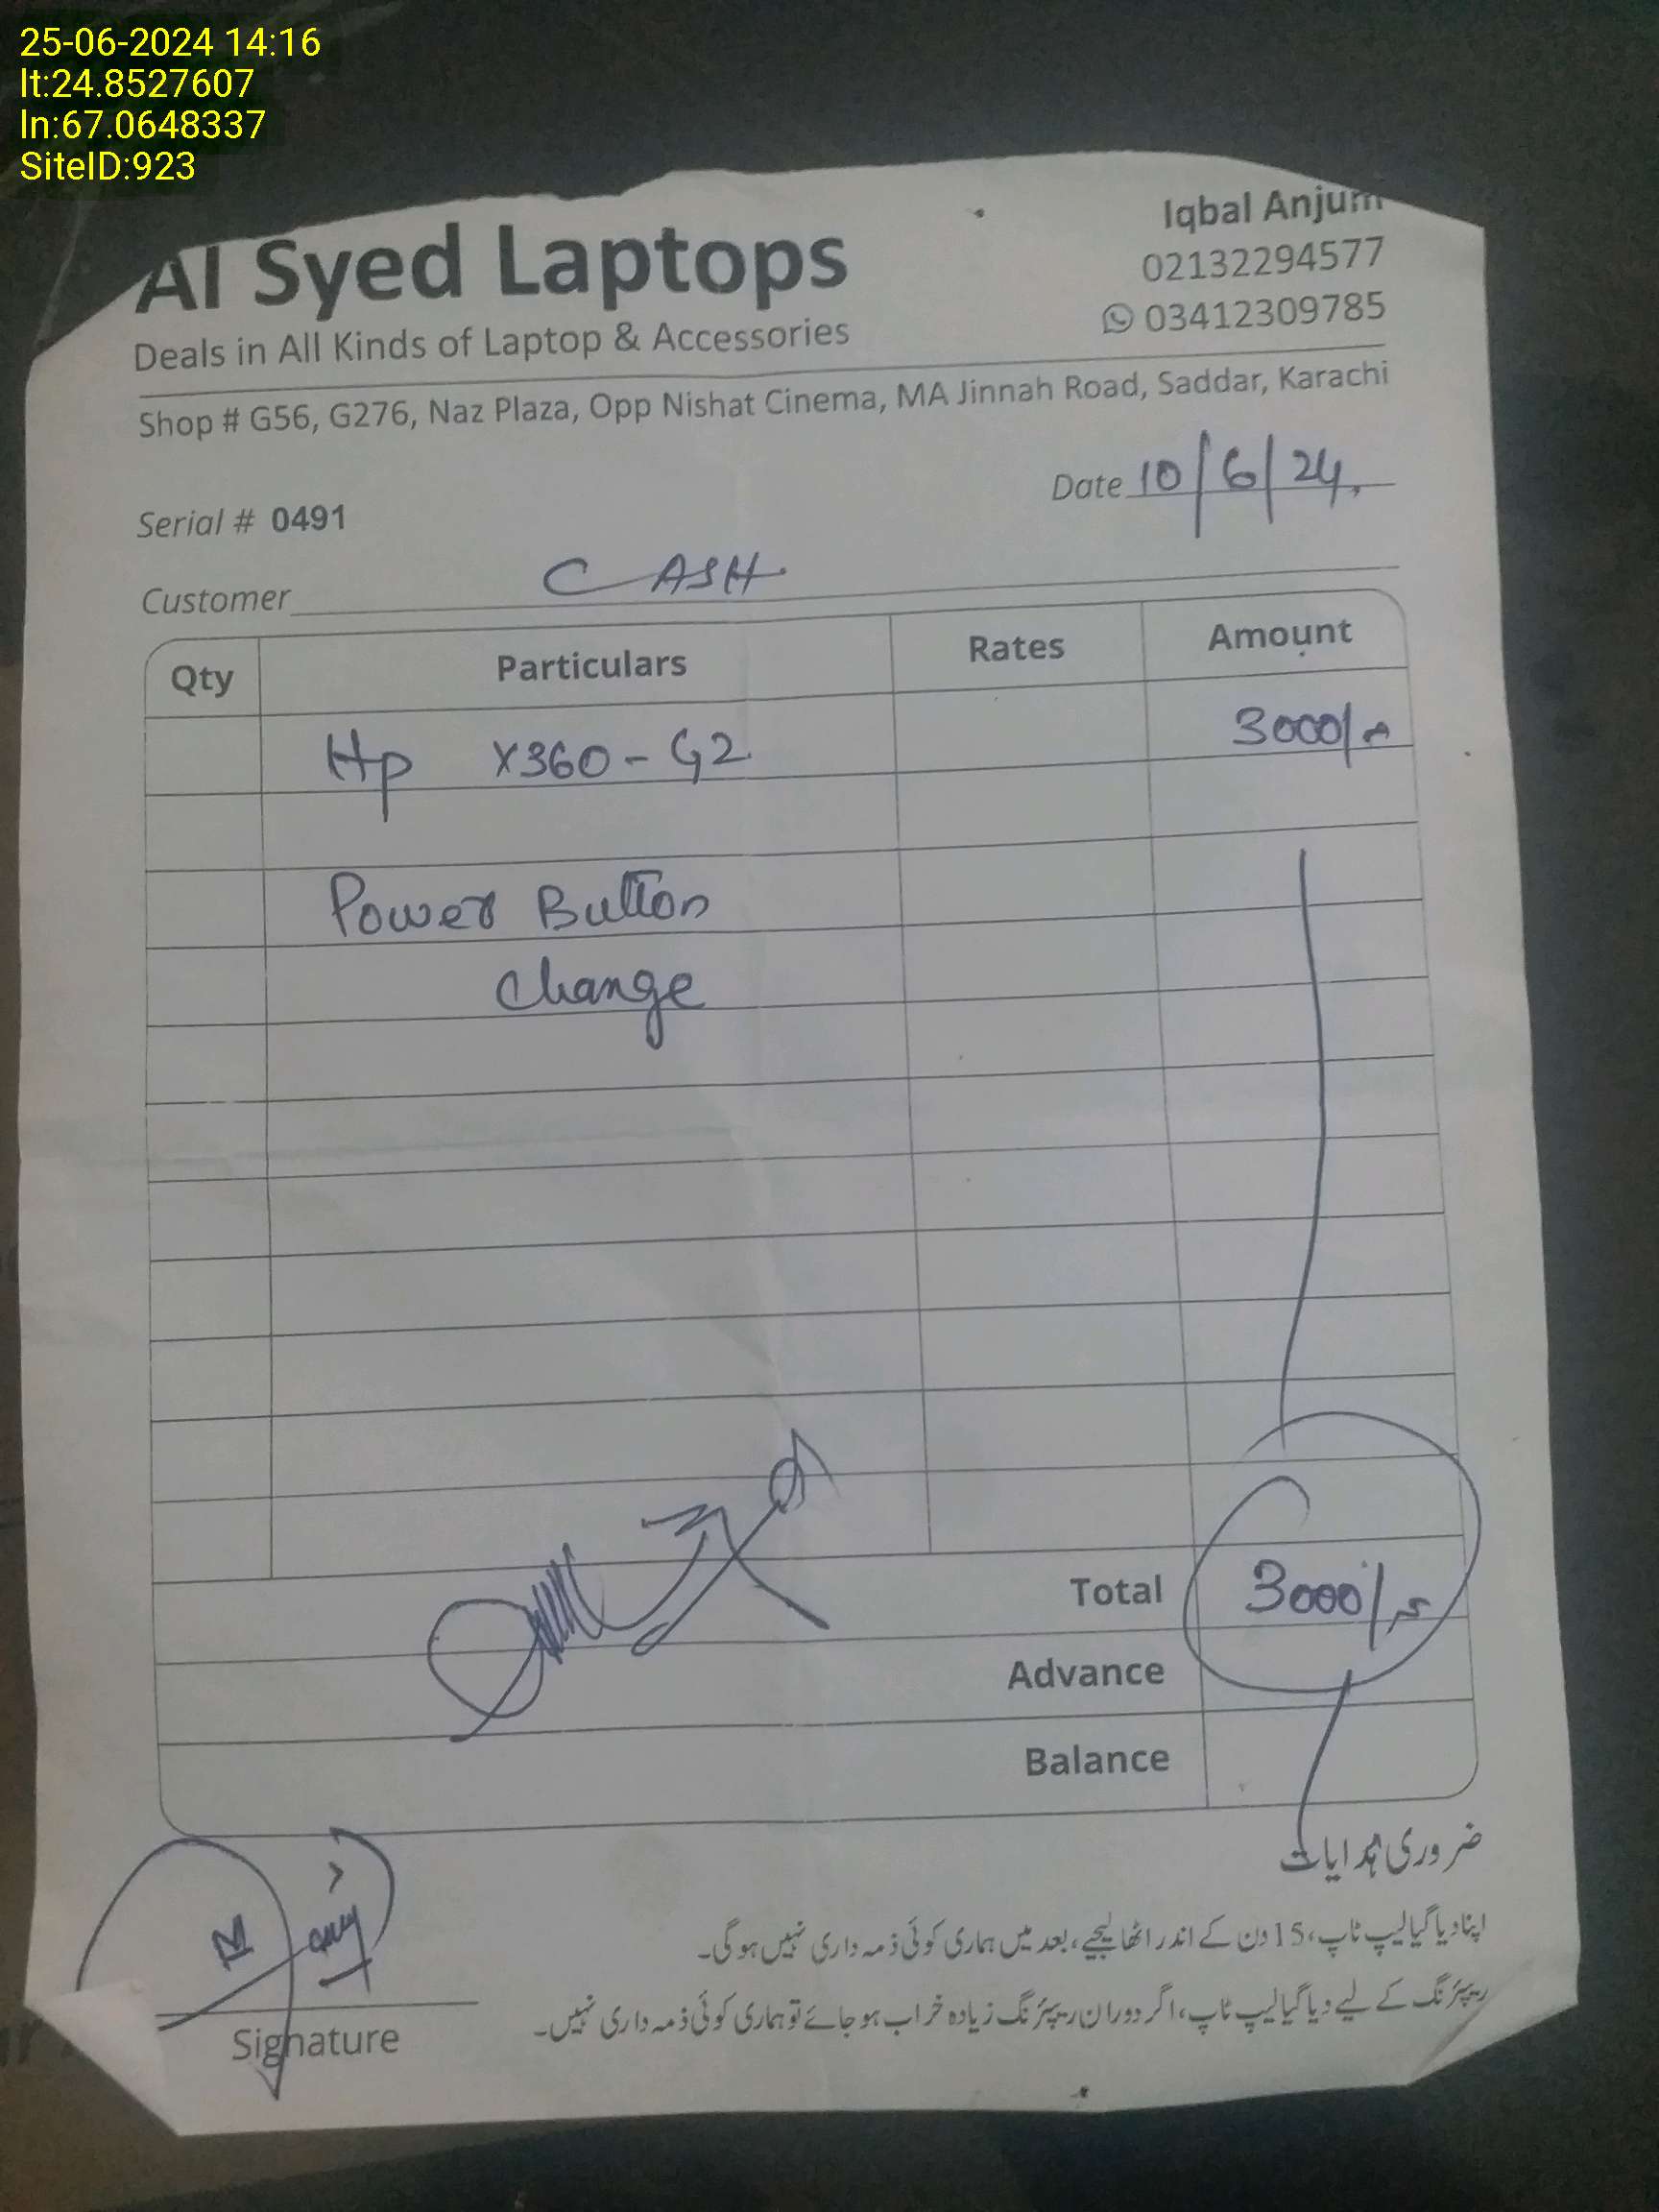 25-06-2024 14:16
lt:24.8527607
ln:67.0648337
SiteID:923
Al Syed Laptops
Deals in All Kinds of Laptop & Accessories
Iqbal Anjum
02132294577
03412309785
Shop # G56, G276, Naz Plaza, Opp Nishat Cinema, MA Jinnah Road, Saddar, Karachi
Date 10/6/24
Serial # 0491
Customer CASH
Qty Particulars Rates Amount
Hp X360-G2 3000/-
Power Button
Change
Total 3000/-
Advance
Balance
ضروری ہدایات
اپنا دیا گیا لیپ ٹاپ، 15 دن کے اندر اٹھا لیجیے، بعد میں ہماری کوئی ذمہ داری نہیں ہوگی۔
ریپئرنگ کے لیے دیا گیا لیپ ٹاپ، اگر دوران ریپئرنگ زیادہ خراب ہو جائے تو ہماری کوئی ذمہ داری نہیں۔
Signature